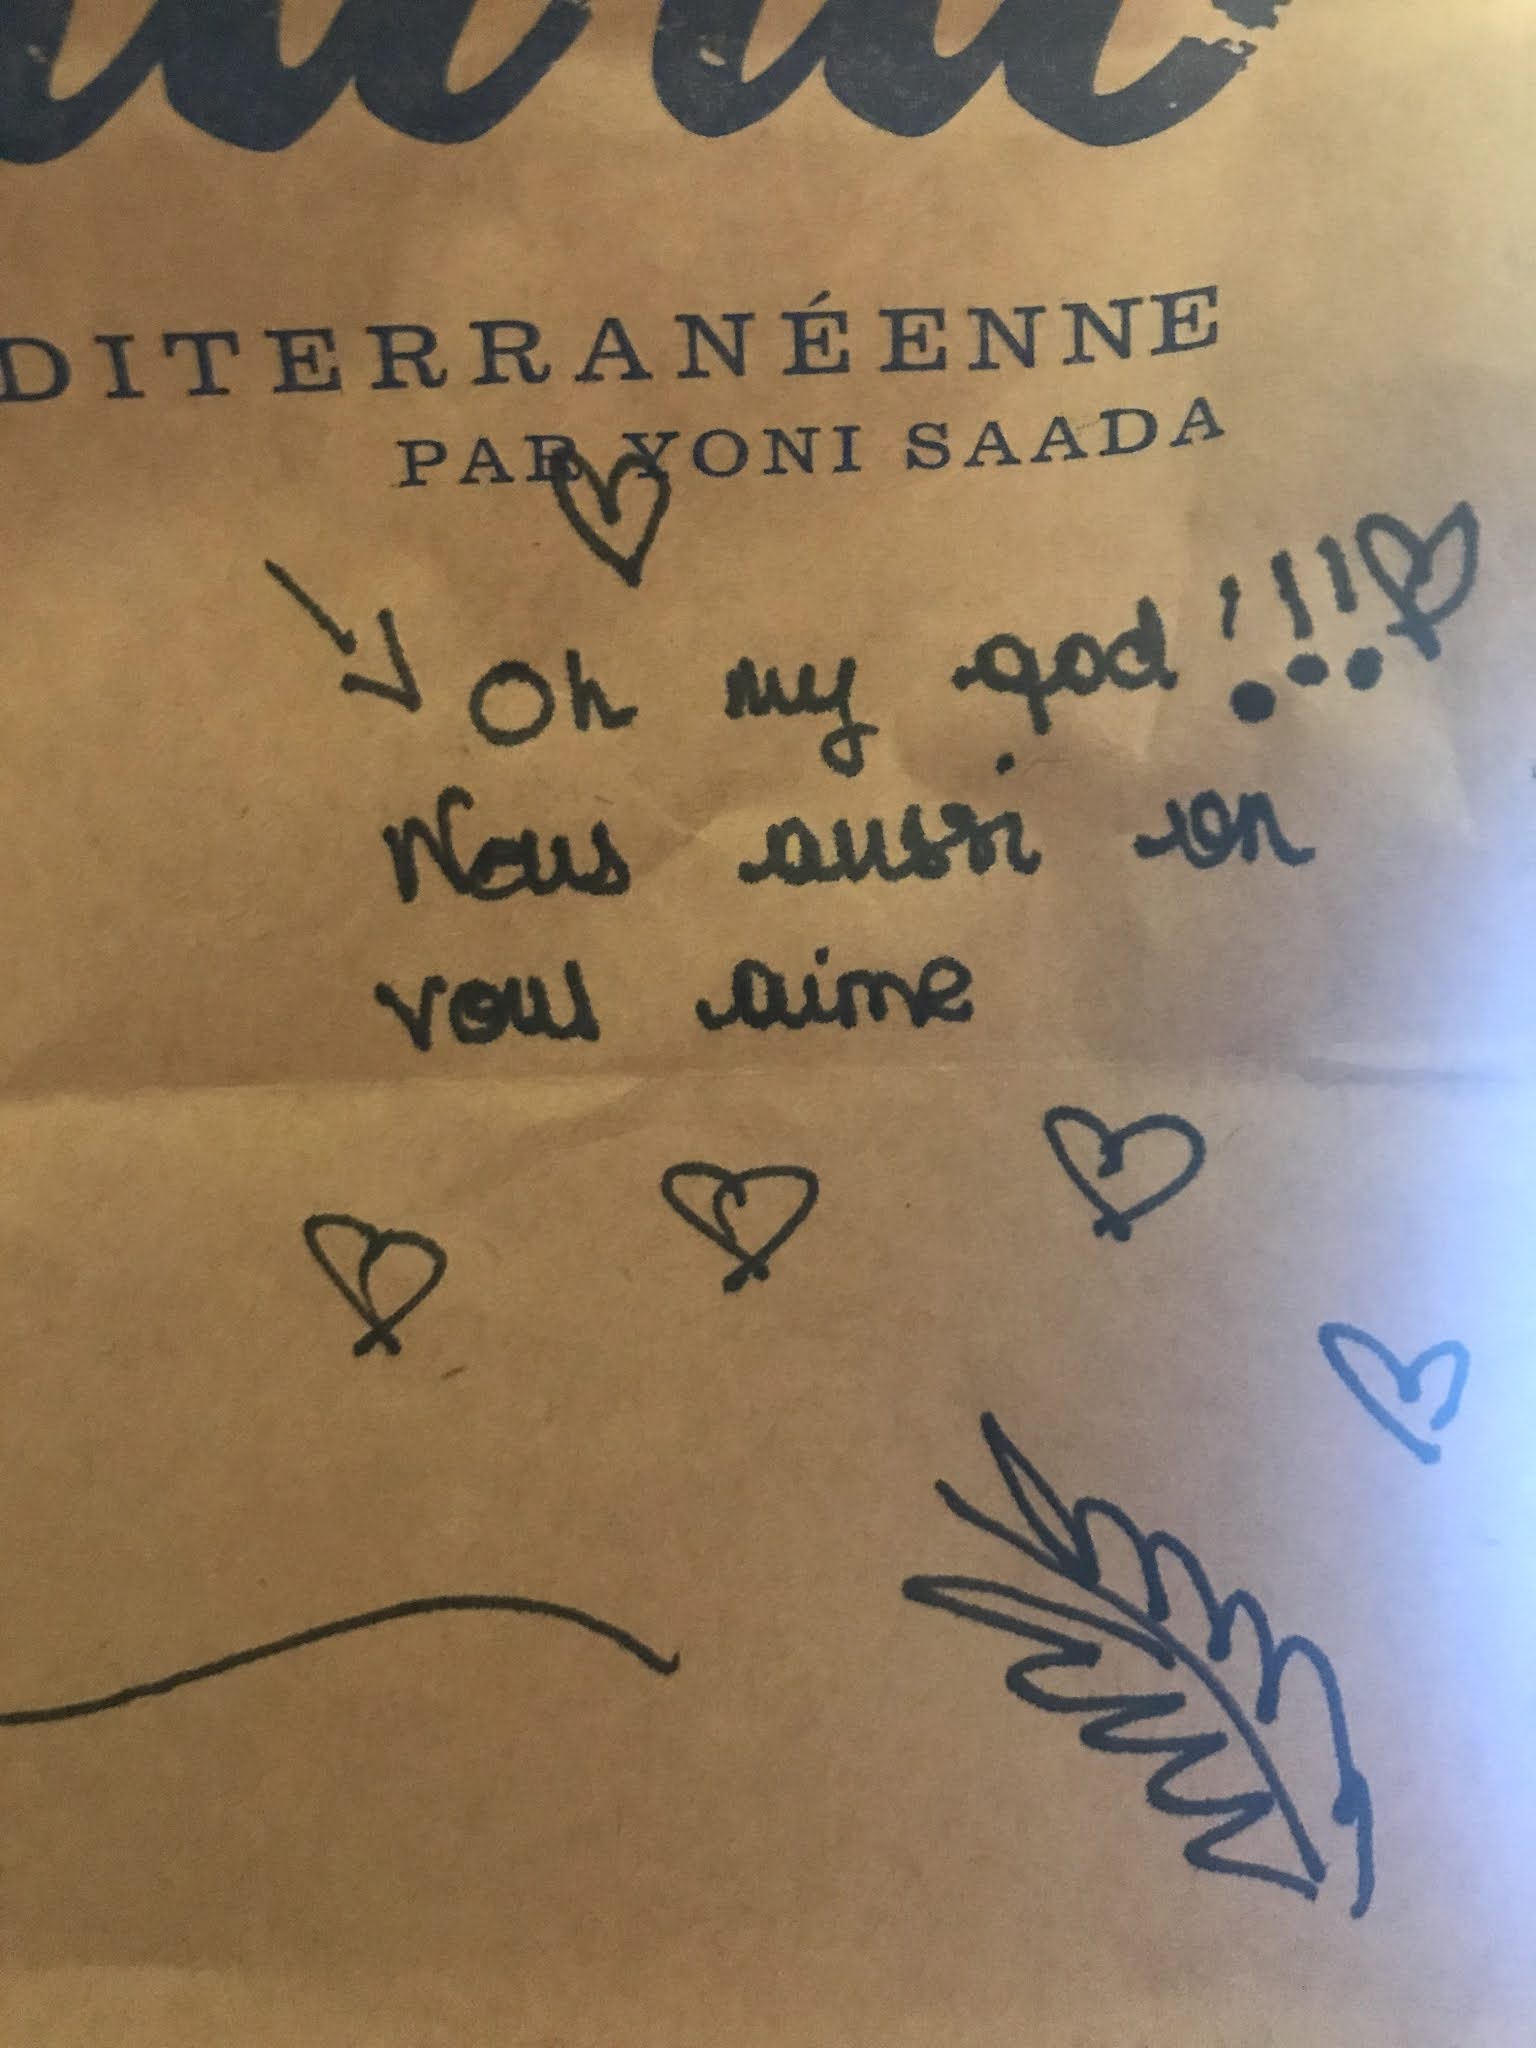 DITERRANÉENNE
PAR YONI SAADA
Oh my god !!!
Nous aussi on
vous aime